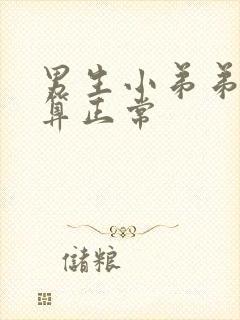 男生小弟弟
算正常
儲粮